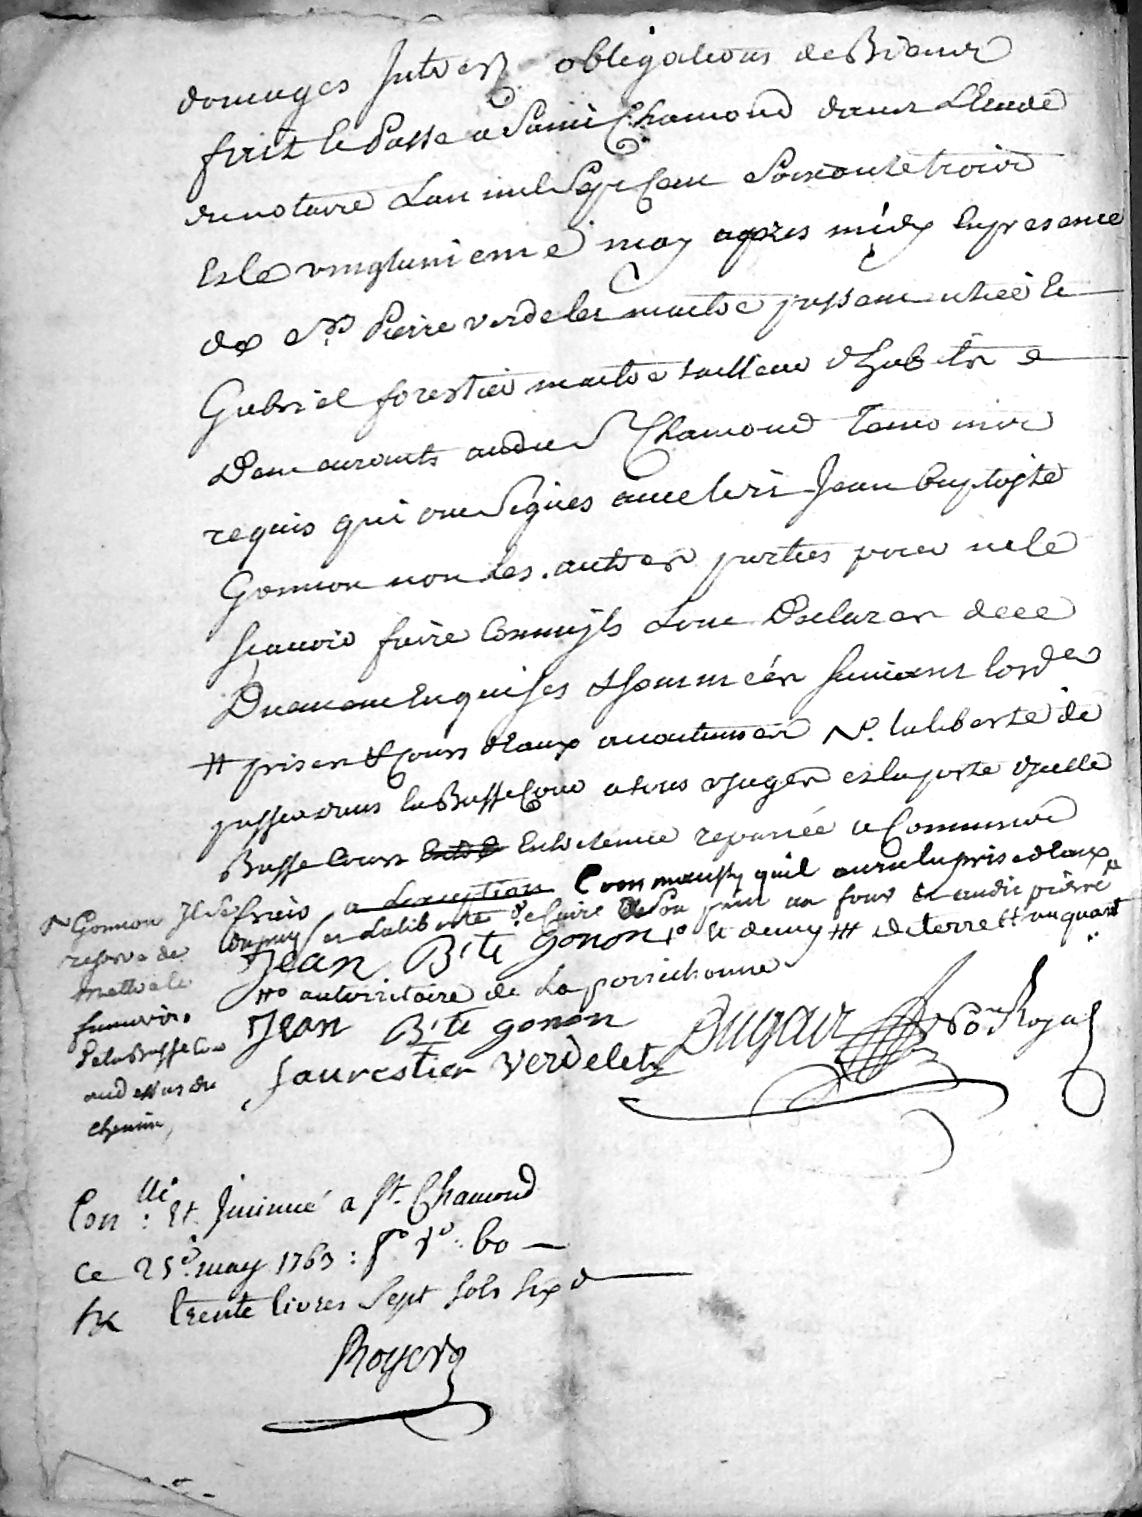 domages Intherest obligations de Biens
fait et Passé a Saint Chamond dans Letude
du notaire Lan mil Sept Cent Soixante trois
et le vingtunieme may apres midy en presence
de Srs Pierre verdelet maitre passementier et
Gabriel forestier maitre tailleur d'habits
Demeurants audit St Chamond temoins
requis qui ont Signés avec led. Jean baptiste
Gonnon non les autres parties pour ne le
scavoir faire Comm'ils ont Declarer de ce
Duement Enquises & sommées suivant lord.e
# prises & Cours deaux acoutumer N.o la liberté de
passer dans la Basse Cour a tous usages et la porte d'jcelle
Basse Cour Entretenue reparée a Communs
frais a Lexception Comm'aussy qu'il aura la prise deaux
et La liberté de faire un four audit pierre
Jean B.te gonon et demy de terre un quart
autorisée de La
Jean B.te gonon
faurestier verdelet Dugair No.re Royal
Gonnon Il Se
reserve de
mettre le
fumier
de la Basse Cour
audessus du
chemin,
Con.lle : Et Jnsinué a St. Chamond
Ce 25.e may 1763 : f.o v.o : 60
Rx trente livres Sept sols six d
Royer